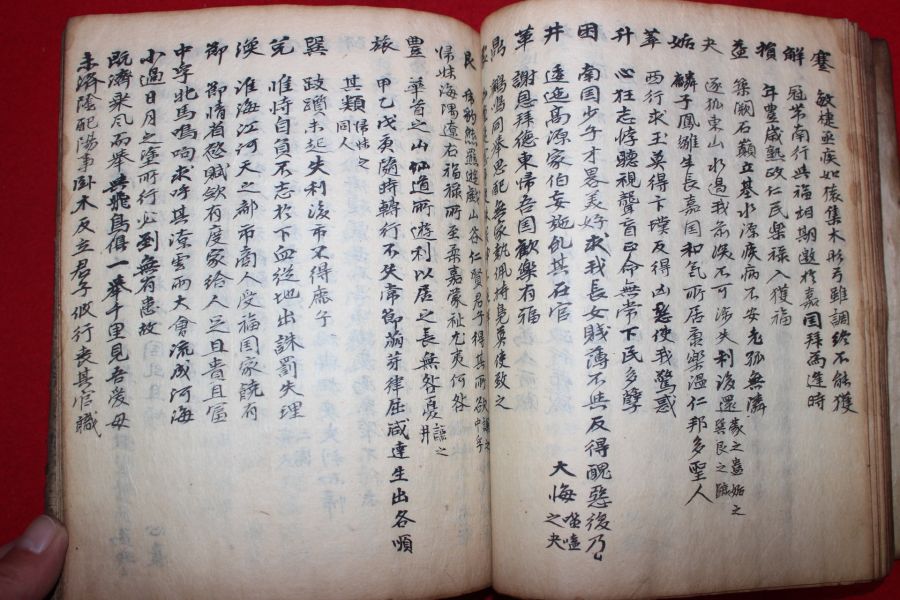 蹇 敏捷亟疾如猿集木彤弓雖調終不能獲
解 冠帶南行與福相期邀於嘉國拜而逢時
損 年豊歲熟政仁民樂祿入獲福
益 築闕石巔立基水源疾病不安老孤無隣
夬 逐狐東山水遏我前深不可涉失利後還 蒙之蠱姤之 巽艮之臨
姤 麟子鳳雛生長嘉國和氣所居康樂溫仁邦多聖人
萃 西行求玉冀得卞璞反得凶惡使我驚惑
升 心狂志悖聽視聾盲正命無常下民多孽
困 南國少子才畧美好求我長女賤薄不與反得醜惡後乃大悔 噬嗑之夬
井 逶迤高源家伯妄施亂其在官
革 謝恩拜德東歸吾国歡樂有福
鼎 鵠思配無家執佩持使致之
艮 豹熊羆遊戲山各仁賢君子得其所欲 中孚
歸妹 海隅遼右福祿所至柔嘉蒙祉九夷何咎
豊 華首之山仙道所遊利以居之長無咎憂 謙之井
旅 甲乙戊庚隨時轉行不失常節萌芽律屈咸達生出各順其類 歸妹之同人
巽 跂躓未起失利後市不得鹿子
兌 惟恃自負不志於下血從地出誅罰失理
渙 淮海江河天之都市商人受福国家饒有
節 節情省慾賦斂有度家給人足且貴且富
中孚 牝馬鳴呴求呼其潦雲雨大會流成河海
小過 日月之途所行必到無有患故
既濟 乘风而舉與飛鳥俱一舉千里見吾愛母
未濟 陰配陽事臥木反立君子彼行丧其官職